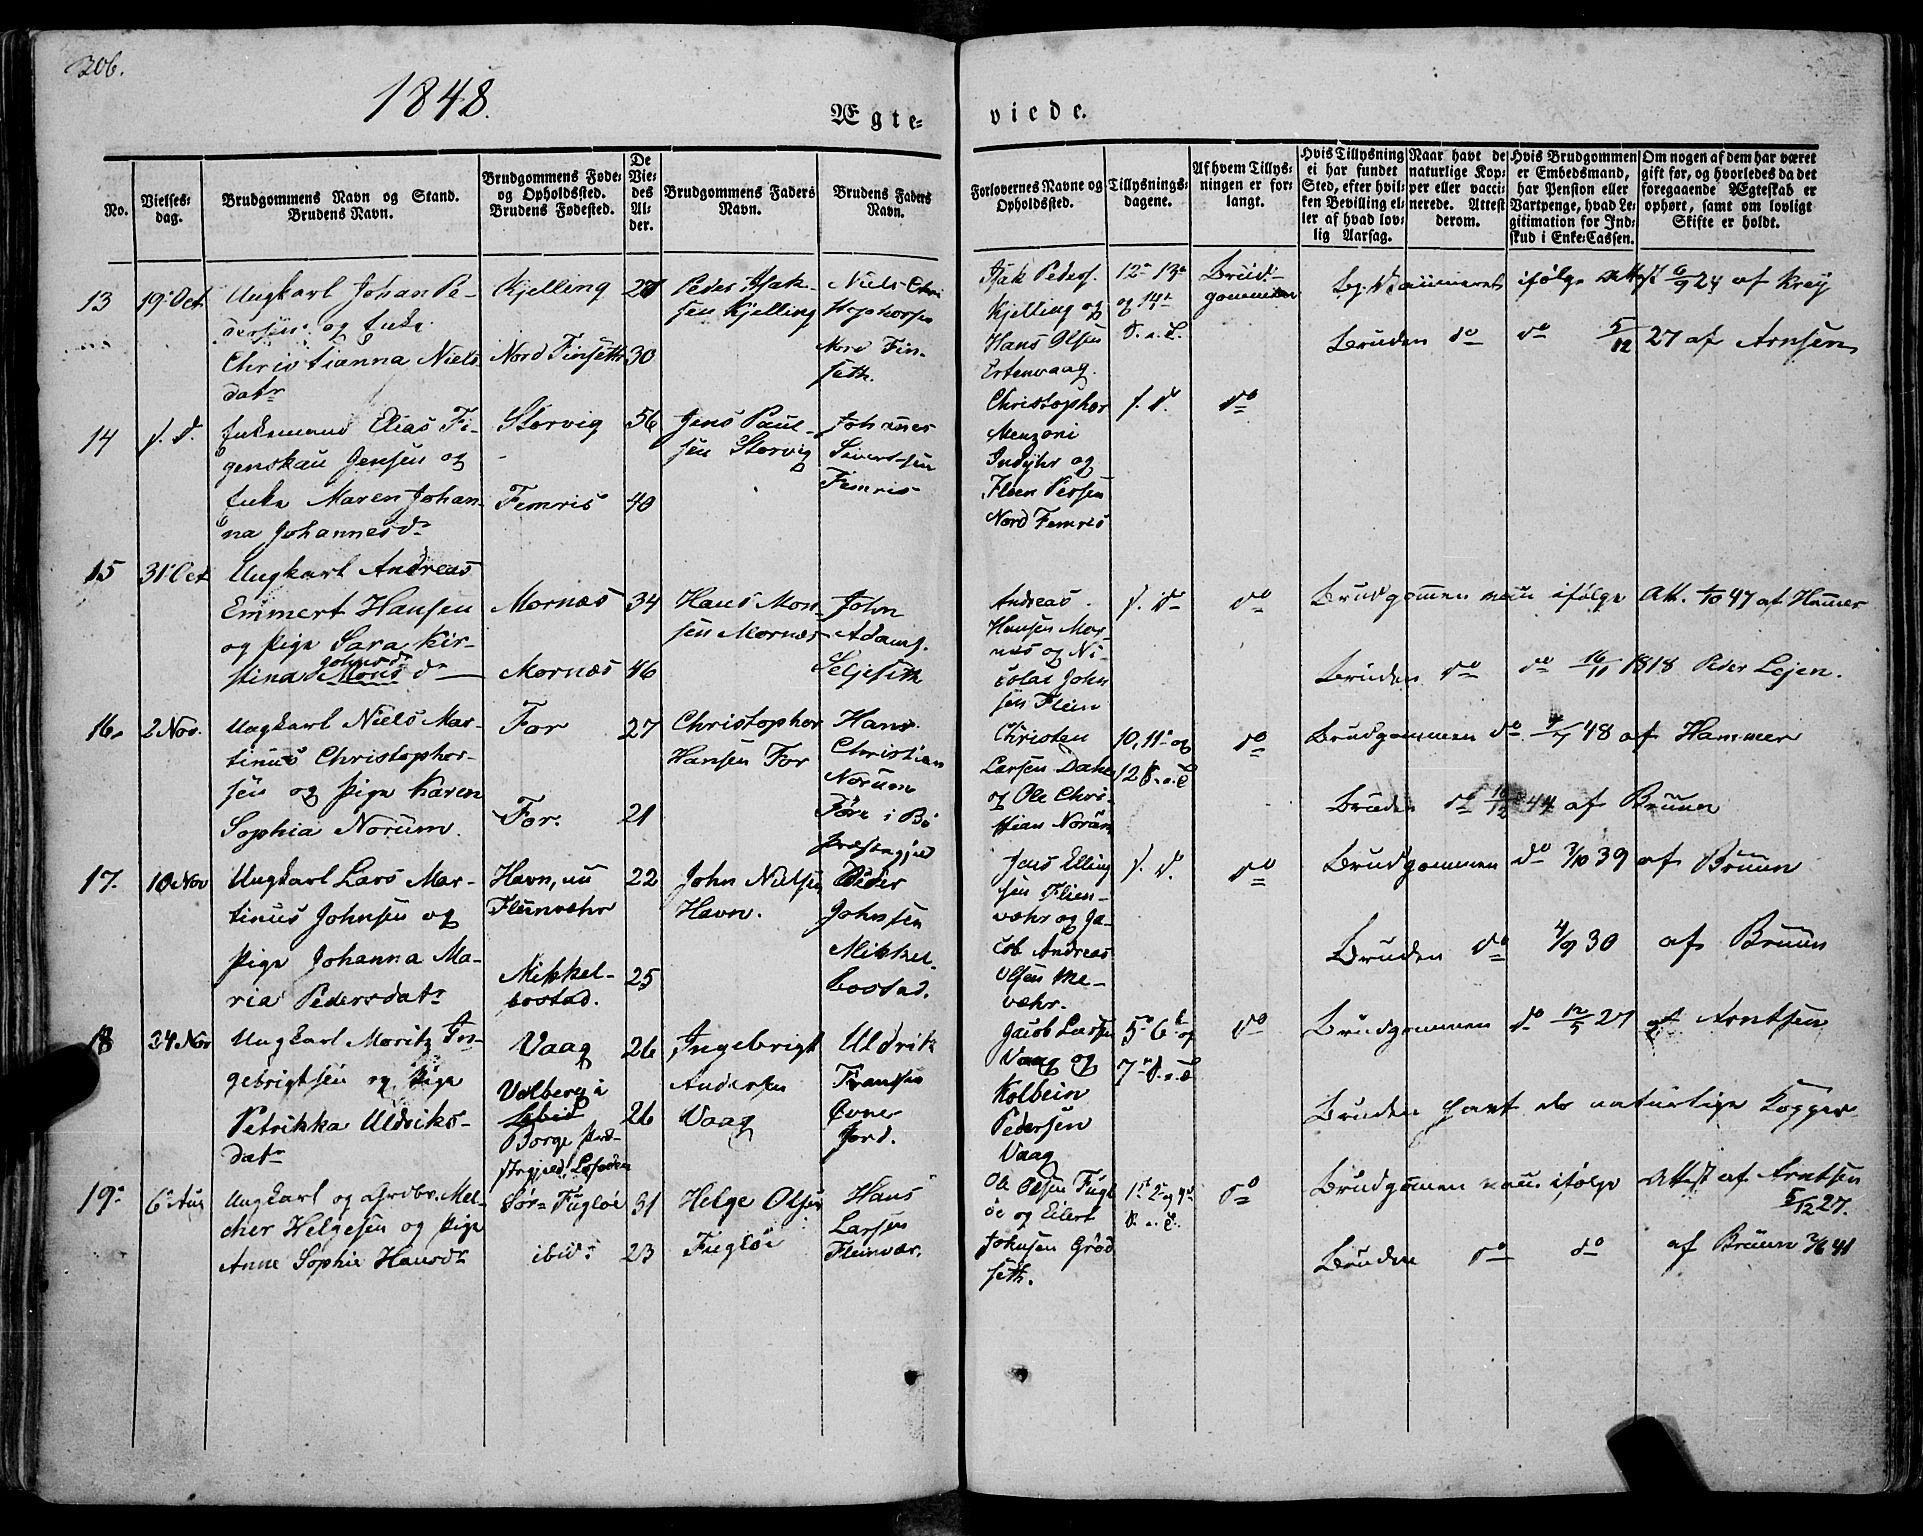 206.
1848.
Ægte=
viede.
No.
Vielses=
dag.
Brudgommens Navn og Stand.
Brudens Navn.
Brudgommens Føde=
og Opholdssted.
Brudens Fødested.
De
Vie=
des
Al=
der.
Brudgommens Faders
Navn.
Brudens Faders
Navn.
Forlovernes Navne og
Opholdssted.
Tillysnings=
dagene.
Af hvem Tillys=
ningen er for=
langt.
Hvis Tillysning
ei har fundet
Sted, efter hvil=
ken Bevilling el=
ler af hvad lov=
lig Aarsag.
Naar havt de
naturlige Kop=
per eller vacci=
nerede. Attest
derom.
Hvis Brudgommen
er Embedsmand,
har Pension eller
Vartpenge, hvad Le=
gitimation for Ind=
skud i Enke=Cassen.
Om nogen af dem har været
gift før, og hvorledes da det
foregaaende Ægteskab er
ophørt, samt om lovligt
Skifte er holdt.
13
19 Oct
Ungkarl Johan Pe-
dersen og Enke
Christianna Niels-
datr
Kjelling
Nord Finseth
27
30
Peder Isak-
sen Kjelling
Niels Chri
stophersen
Nord Fin-
seth.
Isak Peders.
Kjelling og
Hans Olsen
Ertenvaag.
12 13
og 14
S. e. T.
Brud-
gommen
Bg. Vaccineret ifølge Attest 6/9 24 af Krey
Bruden do do 5/12 27 af Arntsen
14
s. d.
Enkemand Elias Fi-
genskau Jensen og
Enke Maren Johan-
na Johannesdr
Storvig
Femris
56
40
Jens Paul-
sen Storvig
Johannes
Sivertsen
Femris
Christopher
Menzoni
Indyhr og
Fleen Persen
Nord Femris
s. d.
do
15
31 Oct
Ungkarl Andreas
Emmert Hansen
og Pige Sara Kir-
stina Johnsdr
Mornæs
Mornæs
34
46
Hans Mon-
sen Mornæs
John
Adams.
Seljeseth
Andreas
Hansen Mor-
næs og Ni-
colai John
sen Flein
s. d.
do
Brudgommen vacc. ifølge Att. 1/10 47 af Hammer
Bruden do do 16/11 1818 Peder Lejen.
16.
2 Nov.
Ungkarl Niels Mar-
tinus Christopher-
sen og Pige Karen
Sophia Norum.
For
For.
27
21
Christopher
Hansen For
Hans
Christian
Norum
Føre i Bø
Præstegjeld
Christen
Larsen Dahe
og Ole Chri-
stian Norum
10, 11 og
12 S. e. T
do
Brudgommen do /7 48 af Hammer
Bruden do 10/12 44 af Bruun
17.
10 Nov
Ungkarl Lars Mar-
tinus Johnsen og
Pige Johanna Ma-
ria Pedersdatr
Havn, nu
Fleinvæhr
Mikkel-
bostad.
22
25
John Nielsen
Havn.
Peder
Johnsen
Mikkel-
bostad.
Jens Elling
sen Flien-
væhr og Ja-
cob Andreas
Olsen Me-
væhr.
s. d.
do
Brudgommen do 2/10 39 af Bruun
Bruden do 4/9 30 af Bruun
18
24 Nov
Ungkarl Moritz In-
gebrigtsen og Pige
Petrikka Uldriks-
datr
Vaag
Valberg i
Borge Præ-
stegjeld Lofoden
26
26
Ingebrigt
Andersen
Vaag
Uldrik
Fransen
Øvre
Jord.
Jacob Larsen
Vaag og
Kolbein
Pedersen
Vaag
5 6 og
7 S. e. T
do
Brudgommen do 12/5 27 af Arntsen
Bruden havt de naturlige Kopper
19
6 Aug
Ungkarl og Grdbr. Mel-
cher Helgesen og Pige
Anne Sophie Hansdr
Sør Fugløe
ibid:
31
23
Helge Olsen
Fugløe
Hans
Larsen
Fleinvær.
Ole Olsen Fugl
øe og Eilert
Johnsen Grød
seth.
1 2 og 4
S. e. T.
do
Brudgommen vacc. ifølge Attest af Arntsen
5/12 27.
Bruden do do af Bruun 2/6 41